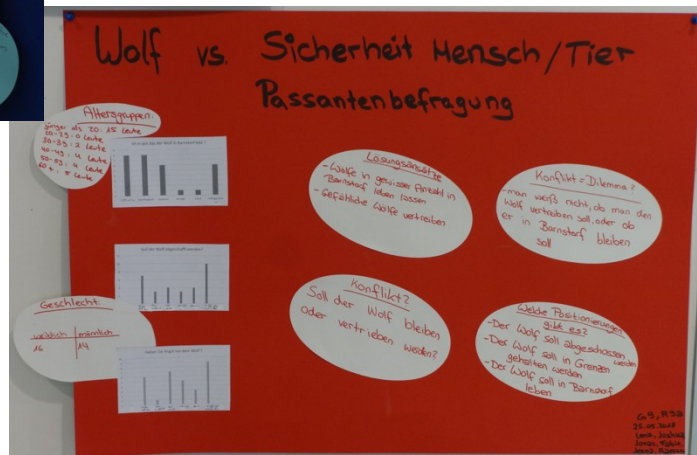 Wolf vs. Sicherheit Mensch/Tier
Passantenbefragung
Altersgruppen:
jünger als 20: 15 Leute
20-29: 0 Leute
30-39: 2 Leute
40-49: 4 Leute
50-59: 4 Leute
60+: 5 Leute
Geschlecht:
weiblich männlich
16 14
Lösungsansätze
-Wölfe in gewisser Anzahl in
Barnstorf leben lassen
-Gefährliche Wölfe vertreiben
Konflikt = Dilemma?
-man weiß nicht, ob man den
Wolf vertreiben soll, oder ob
er in Barnstorf bleiben
soll
Konflikt?
Soll der Wolf bleiben
oder vertrieben werden?
Welche Positionierungen
gibt es?
-Der Wolf soll abgeschossen
werden
-Der Wolf soll in Grenzen
gehalten werden
-Der Wolf soll in Barnstorf
leben